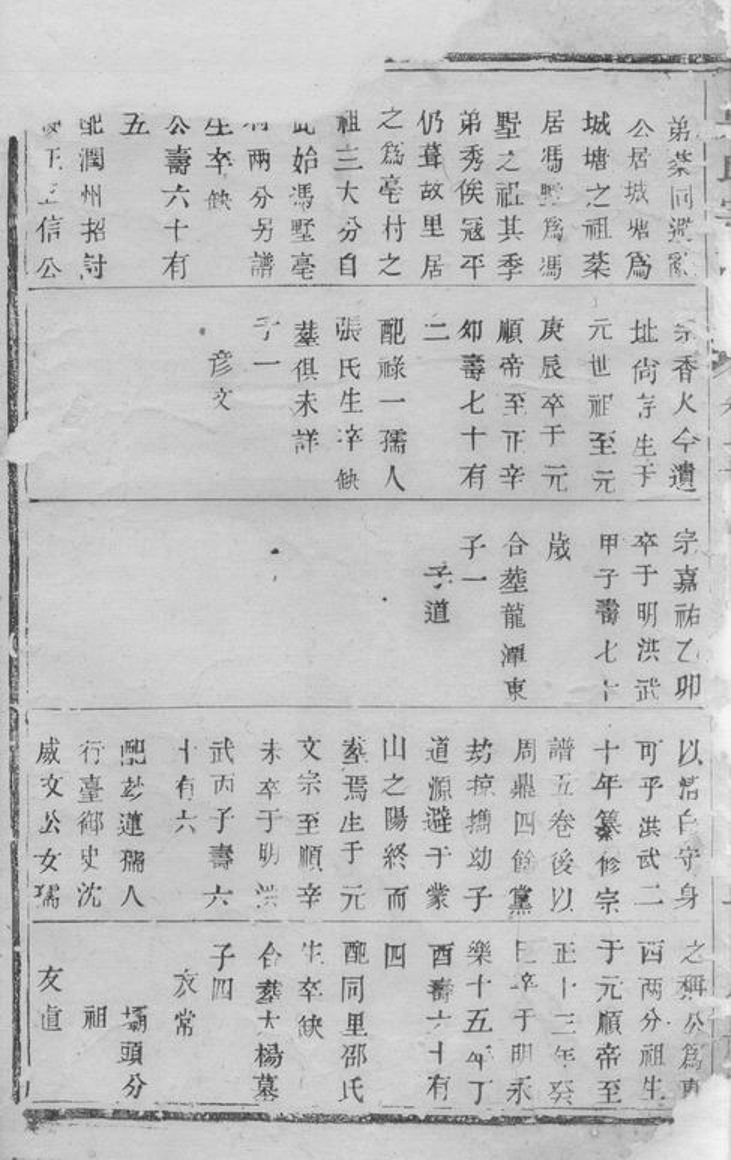 弟棻同避亂
公居城塘爲
城塘之祖棻
居馮墅爲馮
墅之祖其季
弟秀俟寇平
仍葺故里居
之爲亳村之
祖三大分自
此始馮墅亳
村兩分另譜
生卒缺
公壽六十有
五
配潤州招討
使王立信公
宗香火今遺
址尙存生于
元世祖至元
庚辰卒于元
順帝至正辛
卯壽七十有
二
配祿一孺人
張氏生卒缺
墓俱未詳
子一
彦文
宗嘉祐乙卯
卒于明洪武
甲子壽七十
歲
合塟龍潭東
子一
子道
以淸白守身
可乎洪武二
十年纂修宗
譜五卷後以
周鼎四餘黨
劫掠擕幼子
道源避于蒙
山之陽終而
塟焉生于元
文宗至順辛
未卒于明洪
武丙子壽六
十有六
配妙蓮孺人
行臺御史沈
威文公女孺
之稱公爲東
西兩分祖生
于元順帝至
正十三年癸
巳卒于明永
樂十五年丁
酉壽六十有
四
配同里邵氏
生卒缺
合塟大楊墓
子四
友常
壩頭分
祖
友直